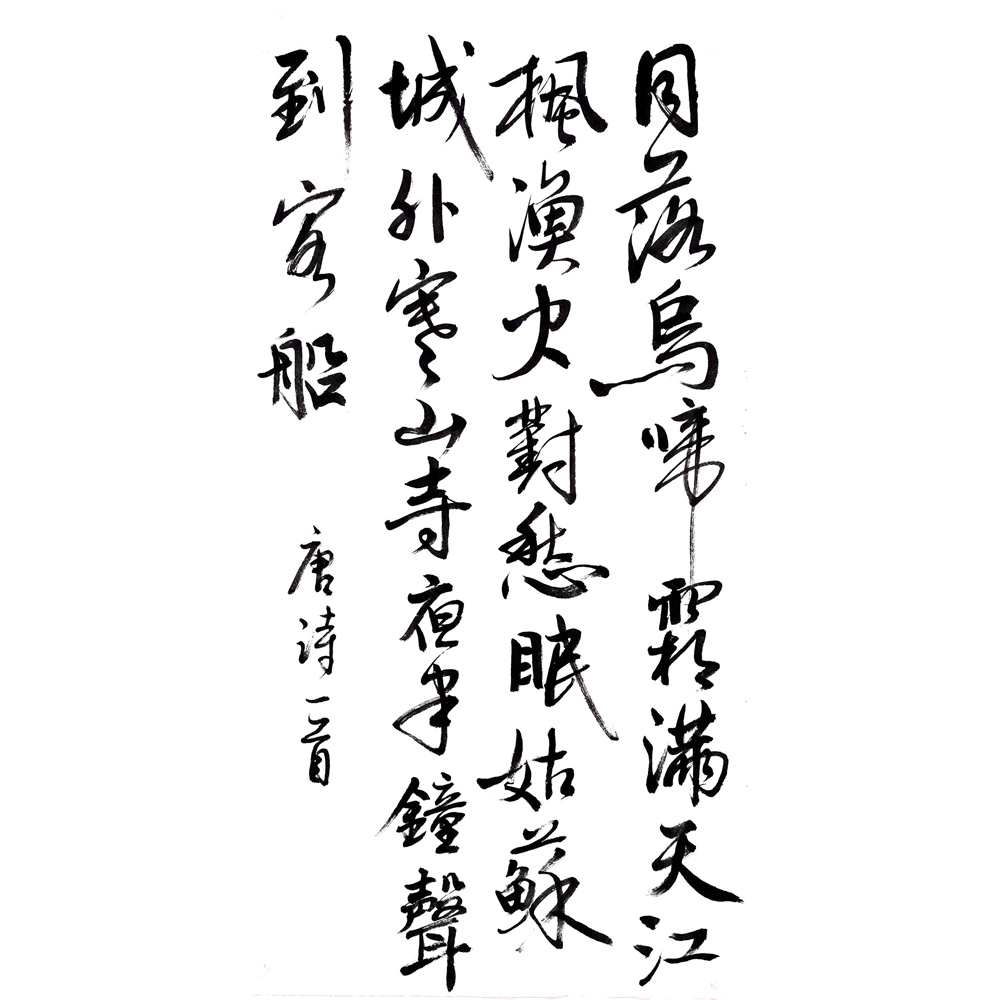 月落烏啼霜滿天江
楓漁火對愁眠姑蘇
城外寒山寺夜半鐘聲
到客船
唐詩一首